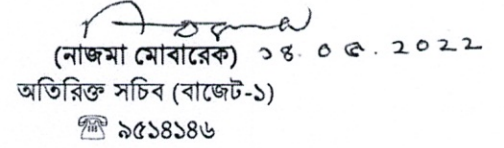 (নাজমা মোবারেক) ১৪.০৫.2022
অতিরিক্ত সচিব (বাজেট-১)
☎ ৯৫১৪১৪৬